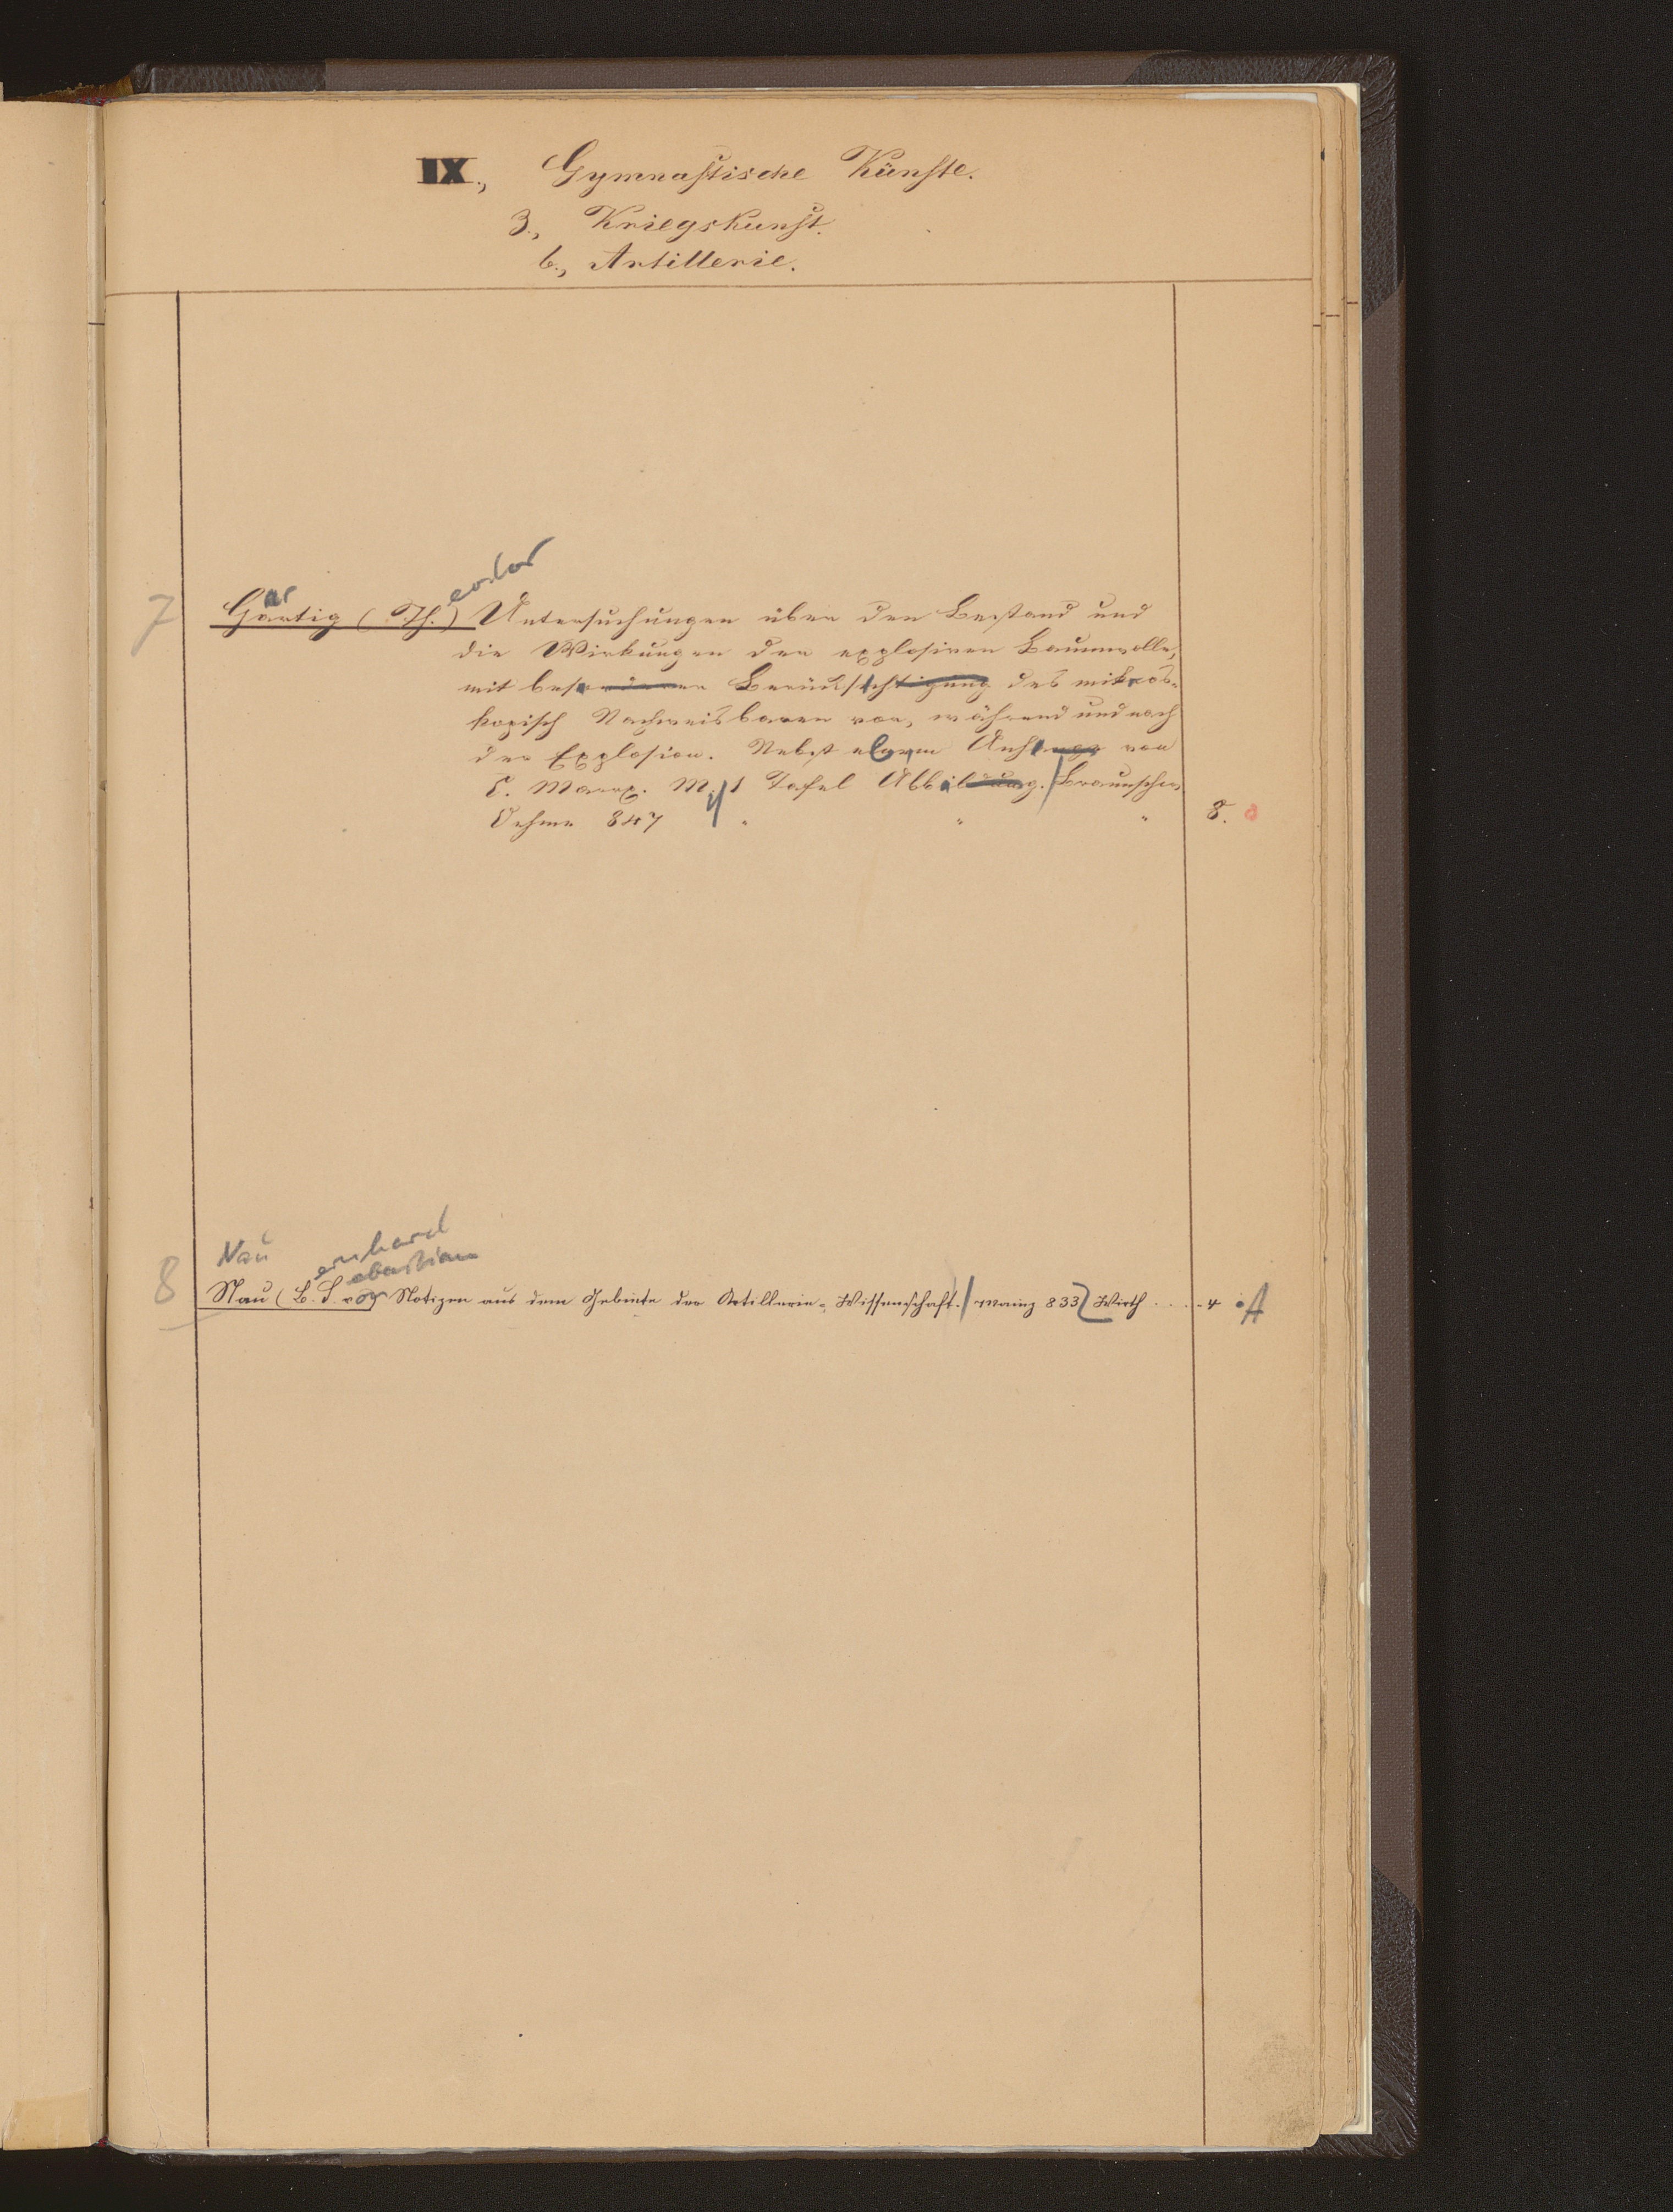 IX., Gymnastische Künste.
3., Kriegskunst.
b., Artillerie.
eodor
ar
7 Hartig (Th.) Untersuchungen über den Bestand und
die Wirkungen der explosiven Baumwolle,
mit besonderer Berücksichtigung des mikros-
kopisch Nachweisbaren vor, während und nach
der Explosion. Nebst einem Anhange von
E. Marx. M. 1 Tafel Abbildung. / Braunschw.
Oehme 847 " " " 8. a
Nau ernhard
ebastian
8 Nau (B. S. von) Notizen aus dem Gebiete der Artillerie-Wissenschaft. / Mainz 833 Wirth ..... 4 A